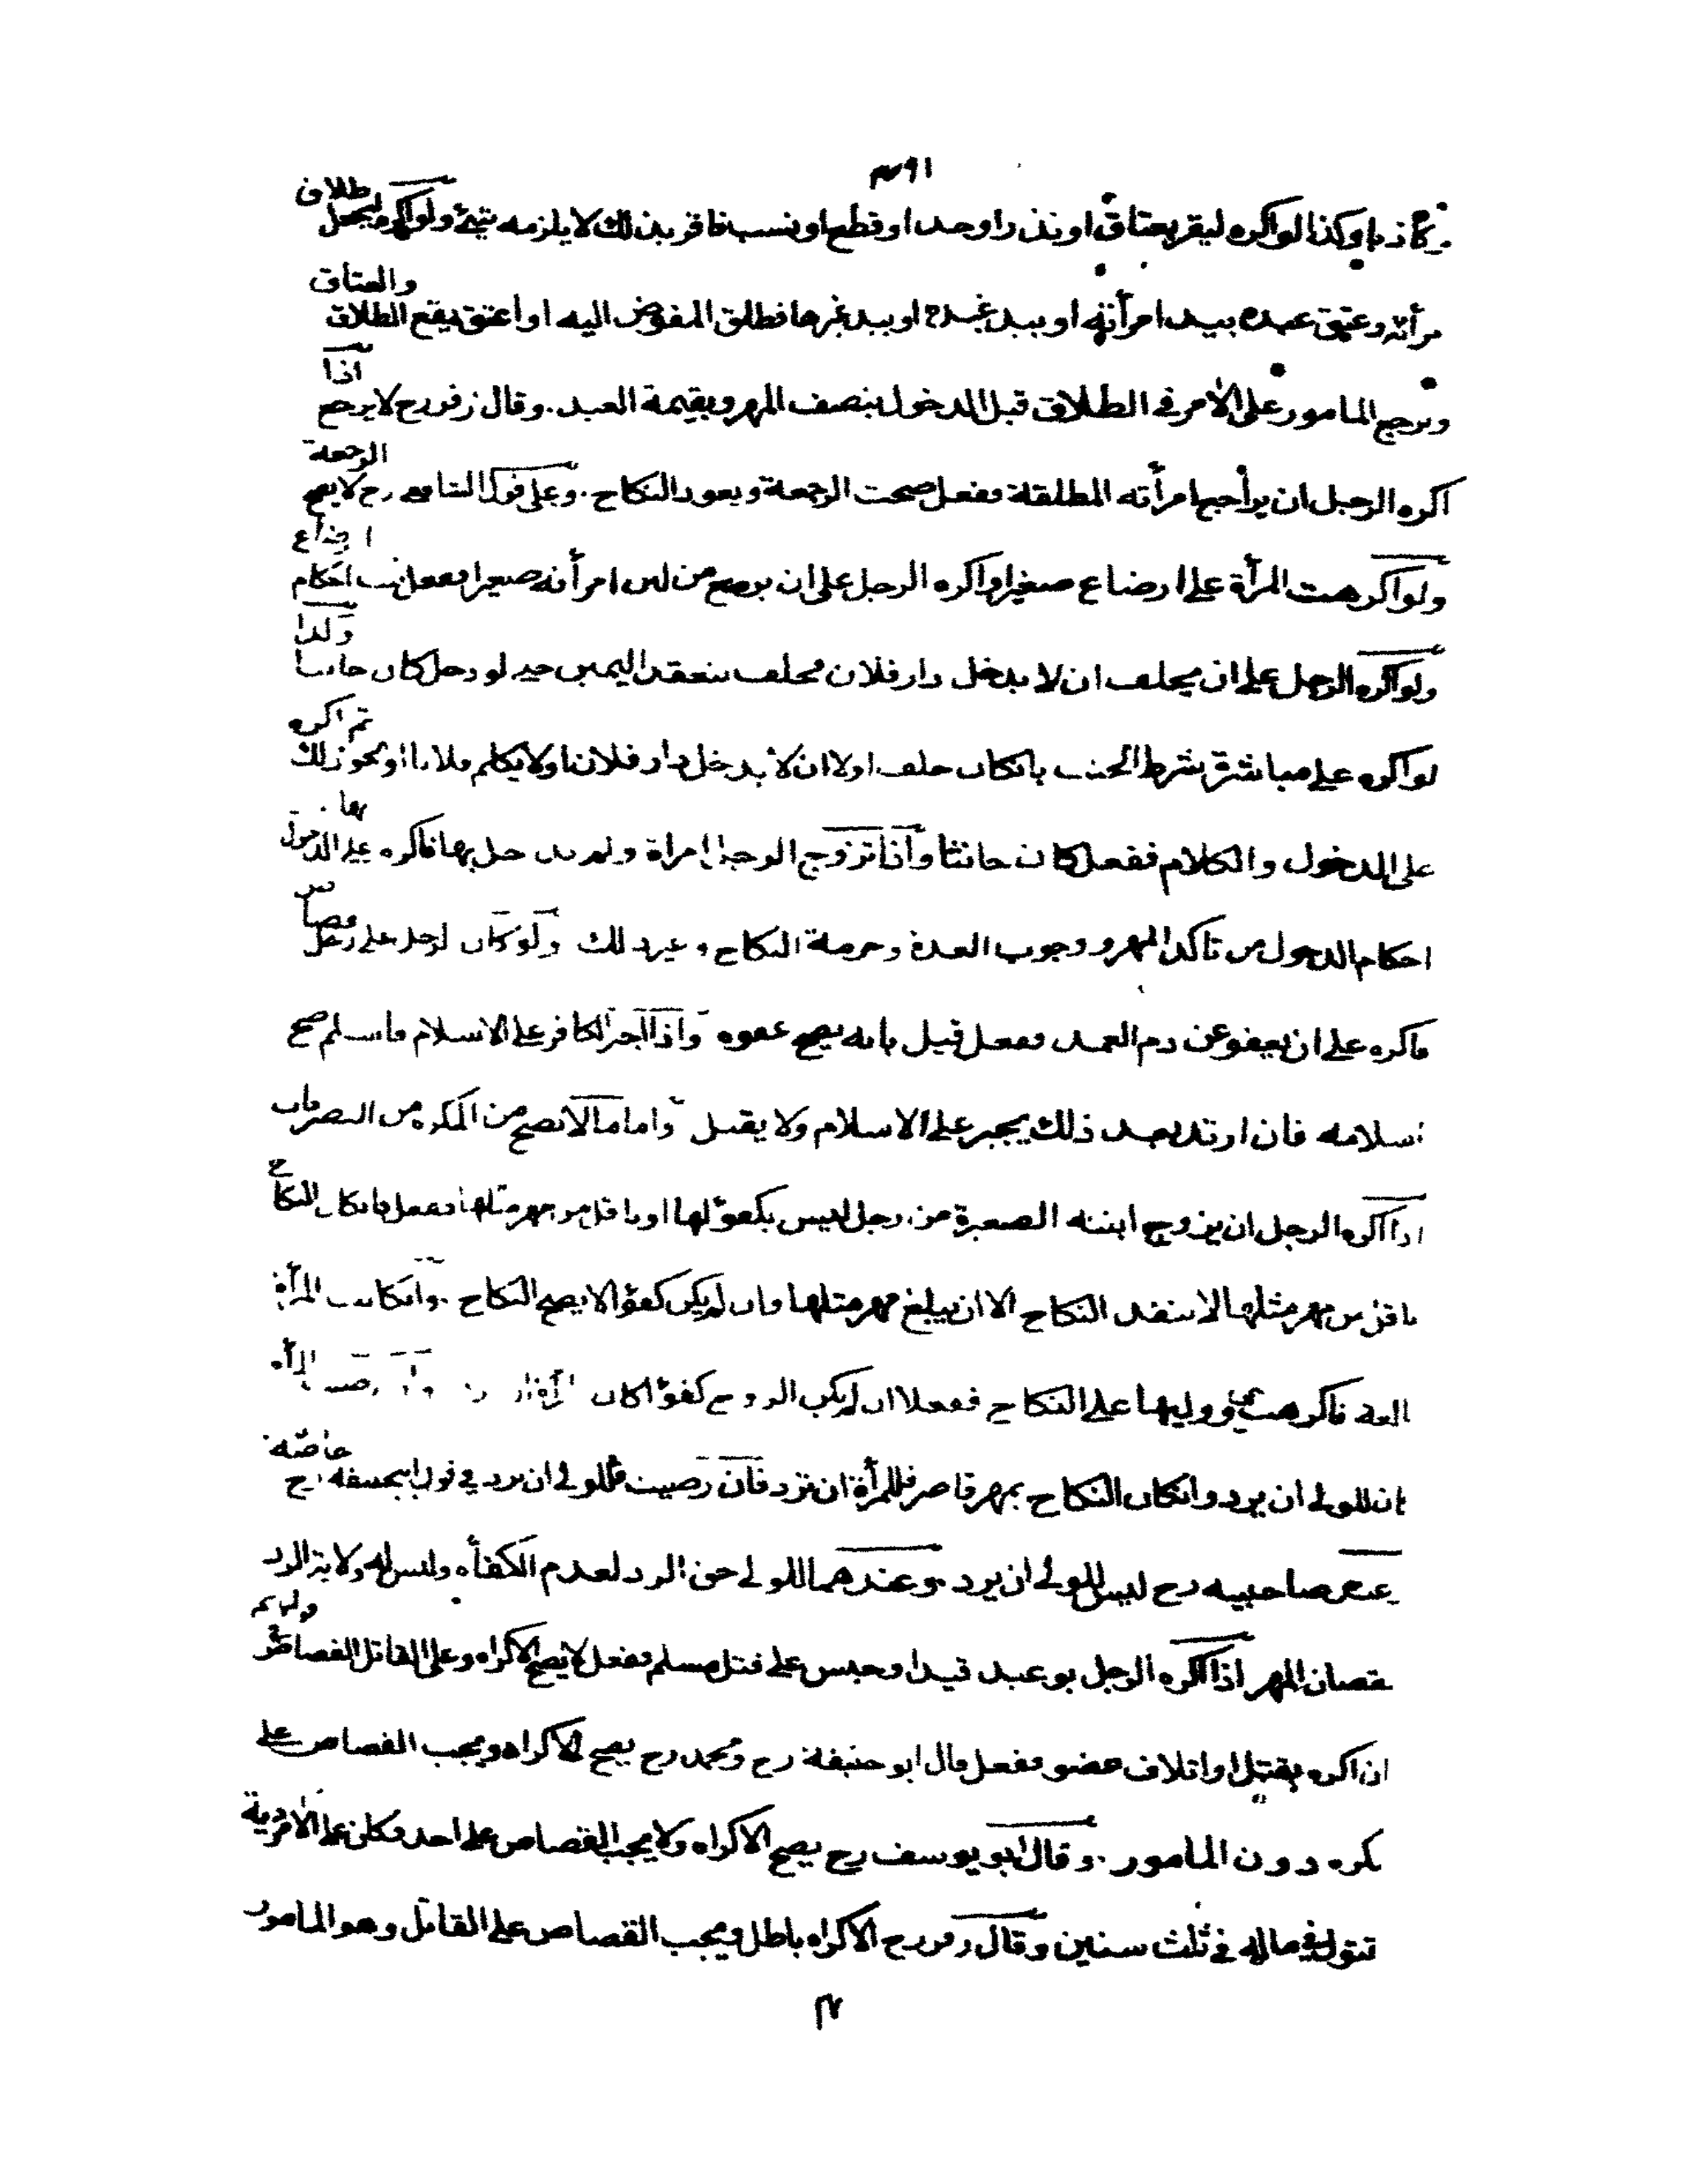 كاذبا وكذا لو اكره ليقر بعتاق او نذر او حد او قطع او نسب فاقر بذلك لا يلزمه شئ ولو اكره ليجعل طلاق
مرأته وعتق عبده بيد امرأته او بيد عبده او بيد غيرها فطلق المفوض اليه او اعتق يقع الطلاق والعتاق
ويرجع المامور على الآمر في الطلاق قبل الدخول بنصف المهر وبقيمة العبد . وقال زفر رح لا يرجع اذا
اكره الرجل ان يراجع امرأته المطلقة ففعل صحت الرجعة ويعود النكاح . وعلى قول الشافعي رح لا يصح الرجعة
ولو اكرهت المرأة على ارضاع صغير او اكره الرجل على ان يرضع من لبن امرأته صغيرا ففعل يثبت احكام الرضاع
ولو اكره الرجل على ان يحلف ان لا يدخل دار فلان فحلف ينعقد اليمين حتى لو دخل كان حانثا وكذا
لو اكره على مباشرة شرط الحنث بان كان حلف اولا ان لا يدخل دار فلان او لا يكلم فلانا او نحو ذلك ثم اكره
على الدخول والكلام ففعل كان حانثا واذا تزوج الرجل امراة ولم يدخل بها فاكره على الدخول بها
احكام الدخول من تاكد المهر ووجوب العدة وحرمة النكاح وغير ذلك ولو كان لرجل على رجل قصاص
فاكره على ان يعفو عن دم العمد ففعل قيل بانه يصح عفوه واذا اجبر الكافر على الاسلام فاسلم صح
اسلامه فان ارتد بعد ذلك يجبر على الاسلام ولا يقتل واما ما لا تصح من المكره من التصرفات
اذا اكره الرجل ان يزوج ابنته الصغيرة من رجل ليس بكفؤ لها او باقل من مهر مثلها ففعل فان كان النكاح
باقل من مهر مثلها لا ينفذ النكاح الا ان يبلغ مهر مثلها وان لم يكن كفؤا لا يصح النكاح . وان كانت المرأة
فاكرهت هي ووليها على النكاح ففعلا ان لم يكن الزوج كفؤا كان المرأة
ان للولي ان يرد وان كان النكاح بمهر قاصر فللمرأة ان ترد فان رضيت فللولي ان يرد في قول ابي حنيفة رح خاصة
عند صاحبيه رح ليس للولي ان يرد . وعندهما للولي حق الرد لعدم الكفأة وليس له ولاية الرد
نقصان المهر اذا اكره الرجل بوعيد قيد او حبس على قتل مسلم ففعل لا يصح الاكراه وعلى القاتل القصاص في قولهم
ان اكره بقتل او اتلاف عضو ففعل قال ابو حنيفة رح ومحمد رح يصح الاكراه ويجب القصاص على
لمكره دون المامور . وقال ابو يوسف رح يصح الاكراه ولا يجب القصاص على احد وكان على الآمر دية
المقتول في ماله في ثلث سنين وقال زفر رح الاكراه باطل ويجب القصاص على القاتل وهو المامور